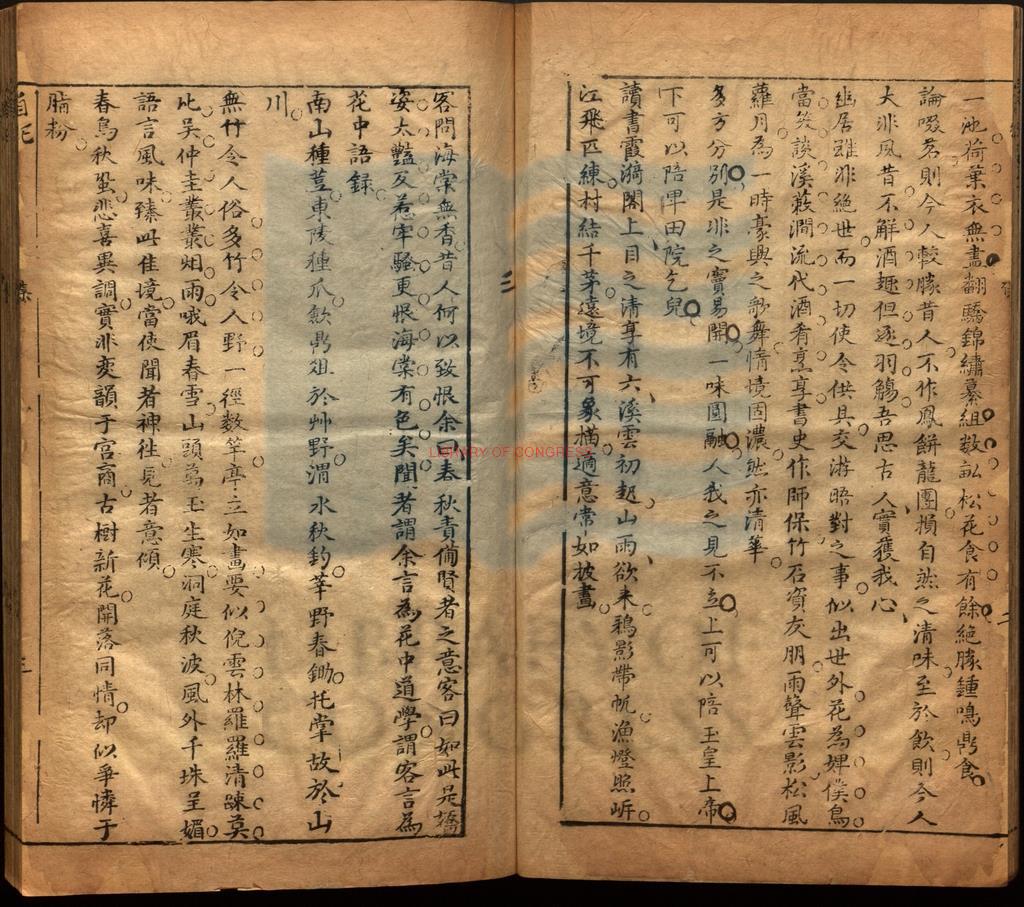 一池荷葉衣無盡翻驕錦繡纂組数畝松花食有餘絶勝鍾鳴鼎食
論啜茗則今人較勝昔人不作鳳餅龍團損自然之清味至於飲則今人
大非夙昔不解酒趣但逐羽觴吾思古人實獲我心
幽居雖非絶世而一切使令供具交游晤對之事似出世外花為婢僕鳥
當笑談溪蔌澗流代酒肴烹享書史作師保竹石資友朋雨聲雲影松風
蘿月為一時豪興之歌舞情境固濃然亦清華
多方分別是非之竇易開一味圓融人我之見不立上可以陪玉皇上帝
下可以陪畢田院乞兒
讀書霞漪閣上目之清享有六溪雲初起山雨欲来鴉影帶帆漁燈照岍
江飛匹練村結千茅遠境不可象描適意常如披畫
三
客問海棠無香昔人何以致恨余曰春秋責備賢者之意客曰如此是嬌
姿太豔反惹牢騷更恨海棠有色矣聞者謂余言為花中道學謂客言為
花中語録
南山種荳東陵種爪歟鼎俎於艸野渭水秋釣莘野春鋤托掌故於山
川
無竹令人俗多竹令人野一徑数竿亭立如畫要似倪雲林羅羅清疎莫
比吴仲圭叢叢烟雨峨眉春雪山頭萬玉生寒洞庭秋波風外千珠呈媚
語言風味臻此佳境當使聞者神徃見者意傾
春鳥秋蛩悲喜異調實非変韻于宫商古樹新花開落同情却似爭憐于
脂粉
三
LIBRARY OF CONGRESS